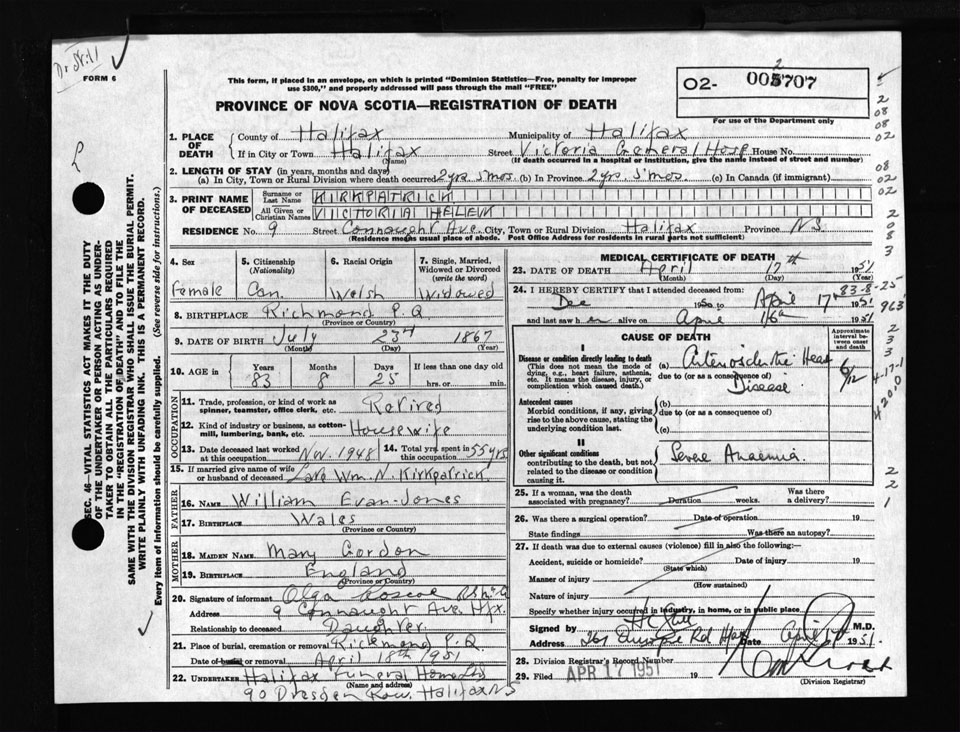 Dr Still
FORM 6
This form, if placed in an envelope, on which is printed "Dominion Statistics—Free, penalty for improper
use $300," and properly addressed will pass through the mail "FREE"
PROVINCE OF NOVA SCOTIA—REGISTRATION OF DEATH
02- 005707
2
For use of the Department only
1. PLACE OF DEATH
County of Halifax Municipality of Halifax
If in City or Town Halifax Street Victoria General Hosp House No.
(Name) (If death occurred in a hospital or institution, give the name instead of street and number)
2. LENGTH OF STAY (in years, months and days)
(a) In City, Town or Rural Division where death occurred 2yrs 5mos. (b) In Province 2yrs. 5mos. (c) In Canada (if immigrant)
3. PRINT NAME OF DECEASED
Surname or Last Name KIRKPATRICK
All Given or Christian Names VICTORIA HELEN
RESIDENCE No. 9 Street Connaught Ave. City, Town or Rural Division Halifax Province N.S.
(Residence means usual place of abode. Post Office Address for residents in rural parts not sufficient)
4. Sex
Female
5. Citizenship
(Nationality)
Can.
6. Racial Origin
Welsh
7. Single, Married, Widowed or Divorced
(write the word)
Widowed
8. BIRTHPLACE Richmond P.Q.
(Province or Country)
9. DATE OF BIRTH July 23rd 1867
(Month) (Day) (Year)
10. AGE in Years Months Days If less than one day old
83 8 25 hrs. or min.
OCCUPATION
11. Trade, profession, or kind of work as
spinner, teamster, office clerk, etc. Retired
12. Kind of industry or business, as cotton-
mill, lumbering, bank, etc. Housewife
13. Date deceased last worked
at this occupation Nov. 1948
14. Total yrs. spent in
this occupation 55 yrs
15. If married give name of wife
or husband of deceased Late Wm. N. Kirkpatrick.
FATHER
16. NAME William Evan-Jones
17. BIRTHPLACE Wales
(Province or Country)
MOTHER
18. MAIDEN NAME Mary Gordon
19. BIRTHPLACE England
(Province or Country)
20. Signature of informant Olga Roscoe
Address 9 Connaught Ave. Hfx.
Relationship to deceased Daughter.
21. Place of burial, cremation or removal Richmond P.Q.
Date of burial or removal April 18th 1951
22. UNDERTAKER Halifax Funeral Home Ltd
(Name and address)
90 Dresden Row. Halifax NS
MEDICAL CERTIFICATE OF DEATH
23. DATE OF DEATH April 17th 1951
(Month) (Day) (Year)
24. I HEREBY CERTIFY that I attended deceased from: 83-8-25
Dec 1950 to April 17th 1951
and last saw her alive on April 16th 1951
CAUSE OF DEATH
Approximate interval between onset and death
I
Disease or condition directly leading to death
(This does not mean the mode of dying, e.g., heart failure, asthenia, etc. It means the disease, injury, or complication which caused death.)
(a) Arteriosclerotic Heart
due to (or as a consequence of)
Disease
6/12
Antecedent causes
Morbid conditions, if any, giving rise to the above cause, stating the underlying condition last.
(b)
due to (or as a consequence of)
(c)
II
Other significant conditions
contributing to the death, but not related to the disease or condition causing it.
Severe Anaemia.
25. If a woman, was the death
associated with pregnancy? Duration weeks. Was there a delivery?
26. Was there a surgical operation? Date of operation 19
State findings Was there an autopsy?
27. If death was due to external causes (violence) fill in also the following:—
Accident, suicide or homicide? Date of injury 19
(State which)
Manner of injury
(How sustained)
Nature of injury
Specify whether injury occurred in industry, in home, or in public place
Signed by H C Still M.D.
Address Rd Hfx Date April 1951.
28. Division Registrar's Record Number
29. Filed APR 17 1951 19
(Division Registrar)
SEC. 46—VITAL STATISTICS ACT MAKES IT THE DUTY
OF THE UNDERTAKER OR PERSON ACTING AS UNDER-
TAKER TO OBTAIN ALL THE PARTICULARS REQUIRED
IN THE "REGISTRATION OF DEATH" AND TO FILE THE
SAME WITH THE DIVISION REGISTRAR WHO SHALL ISSUE THE BURIAL PERMIT.
WRITE PLAINLY WITH UNFADING INK. THIS IS A PERMANENT RECORD.
Every item of information should be carefully supplied. (See reverse side for instructions.)
2
08
08
02
08
02
02
2
0
8
3
963
2
3
3
4-17-1
4200
2
2
1